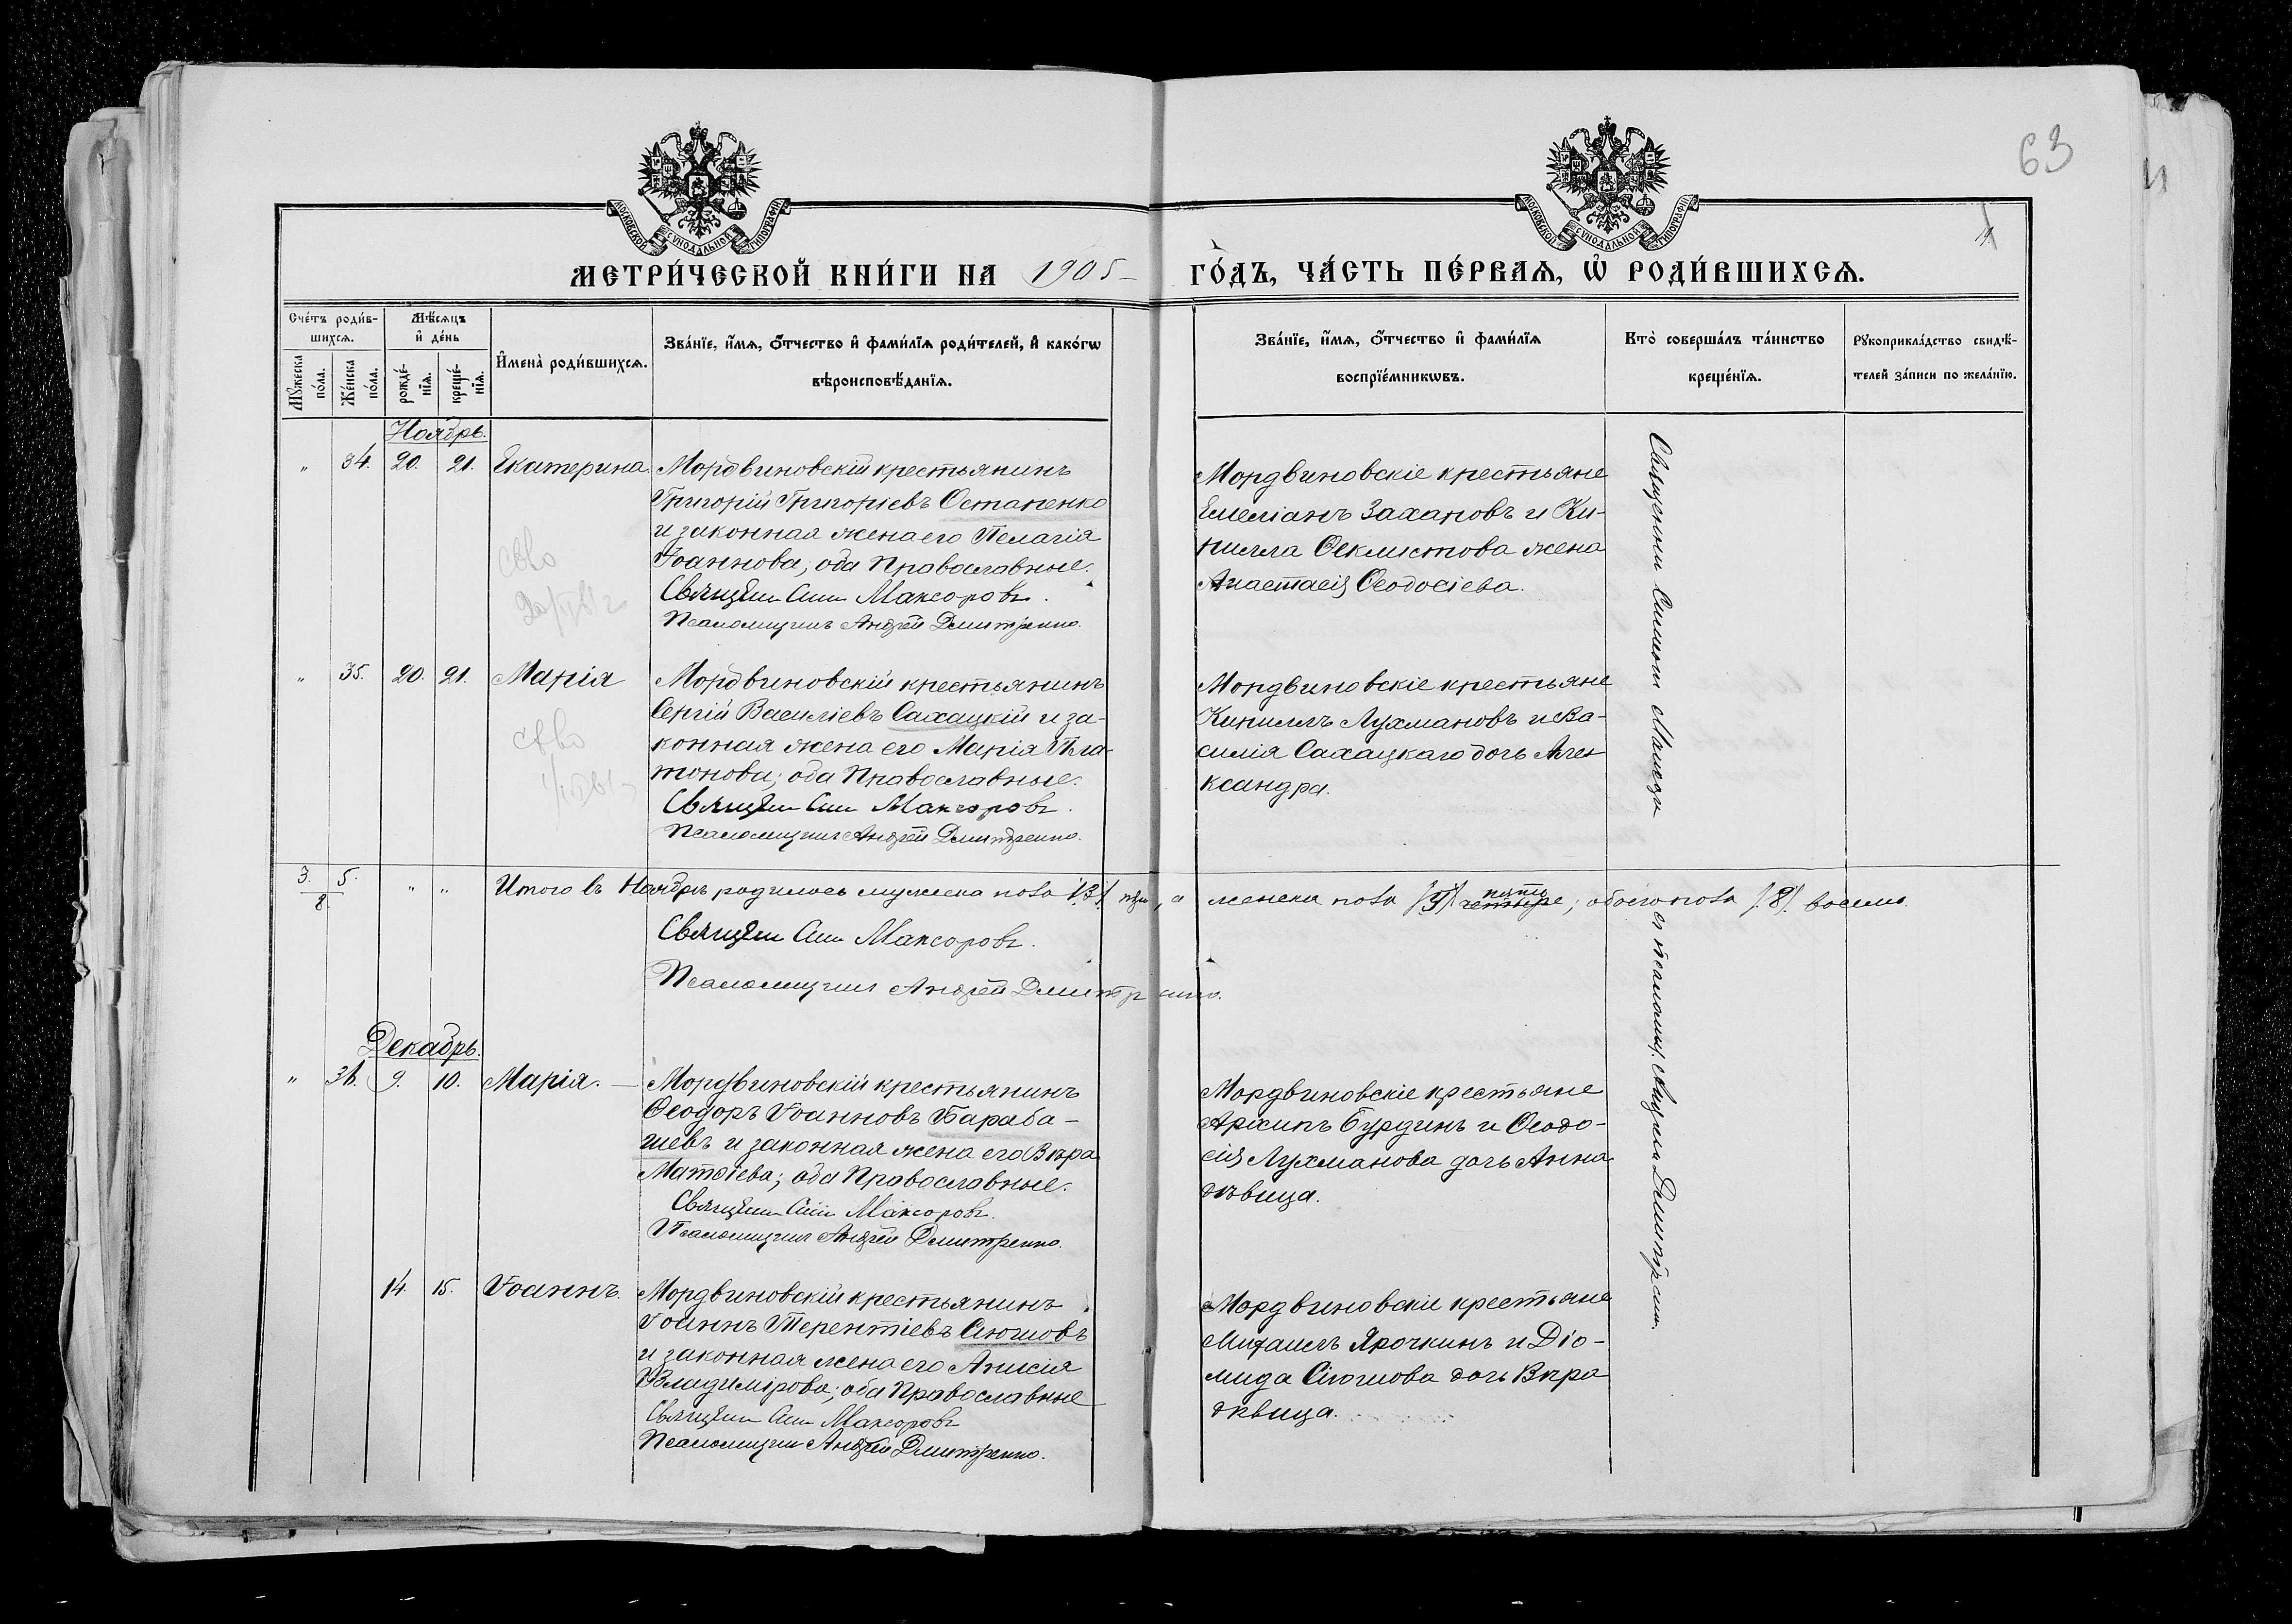 63
МОСКОВСКОЙ СУНОДАЛЬНОЙ ТИПОГРАФІИ
МОСКОВСКОЙ СУНОДАЛЬНОЙ ТИПОГРАФІИ
МЕТРИ́ЧЕСКОЙ КНИ́ГИ НА 1905 ГО́ДЪ, ЧА́СТЬ ПЕ́РВАѦ, Ѡ҆ РОДИ́ВШИХСѦ.
Сче́тъ роди́в-
шихсѧ.
Мꙋ́жеска
по́ла.
Же́нска
по́ла.
Мѣ́сѧцъ
и҆ де́нь
рожде́-
нїѧ.
креще́-
нїѧ.
И҆мена̀ роди́вшихсѧ.
Зва́нїе, и҆́мѧ, ѻ҆́тчество и҆ фами́лїѧ роди́телей, и҆ како́гѡ
вѣроисповѣ́данїѧ.
Зва́нїе, и҆́мѧ, ѻ҆́тчество и҆ фами́лїѧ
воспрїе́мникѡвъ.
Кто̀ соверша́лъ та́инство
креще́нїѧ.
Рꙋкоприкла́дство свидѣ́-
телей за́писи по жела́нїю.
Ноябрь.
" 34. 20. 21. Екатерина.
Мордвиновскій крестьянинъ
Григорій Григоріевъ Остапенко
и законная жена его Пелагія
Іоаннова, оба Православные.
Священ Сим Максоровъ.
Псаломщикъ Андрей Дмитренко.
Мордвиновскіе крестьяне
Емеліанъ Захаровъ и Ки-
рилла Ѳеклистова жена
Анастасія Ѳеодосіева.
" 35. 20. 21. Марія
Мордвиновскій крестьянинъ
Сергій Василіевъ Сахацкій и за-
конная жена его Марія Пла-
тонова; оба Православные.
Священ Сим Максоровъ.
Псаломщикъ Андрей Дмитренко.
Мордвиновскіе крестьяне
Кириллъ Лухмановъ и Ва-
силія Сахацкаго дочь Але-
ксандра.
3. 5. " "
8.
Итого въ Ноябрѣ родилось мужеска пола /3/ три, а женска пола /5/ четыре пять; обоего пола /8/ восемь.
Священ Сим Максоровъ.
Псаломщикъ Андрей Дмитренко.
Декабрь.
" 36. 9. 10. Марія.
Мордвиновскій крестьянинъ
Ѳеодоръ Іоанновъ Бараба-
шевъ и законная жена его Вѣра
Матѳіева; оба Православные.
Священ Сим Максоровъ.
Псаломщикъ Андрей Дмитренко.
Мордвиновскіе крестьяне
Архипъ Бурдинъ и Ѳеодо-
сія Лухманова дочь Анна
дѣвица.
14. 15. Іоаннъ.
Мордвиновскій крестьянинъ
Іоаннъ Терентіевъ Сюшовъ
и законная жена его Анисія
Владимірова; оба Православные
Священ Сим Максоровъ
Псаломщикъ Андрей Дмитренко.
Мордвиновскіе крестьяне
Михаилъ Ярочкинъ и Діо-
мида Сюшова дочь Вѣра
дѣвица.
Священник Симеон
съ псаломщ. Андреем Дмитренко.